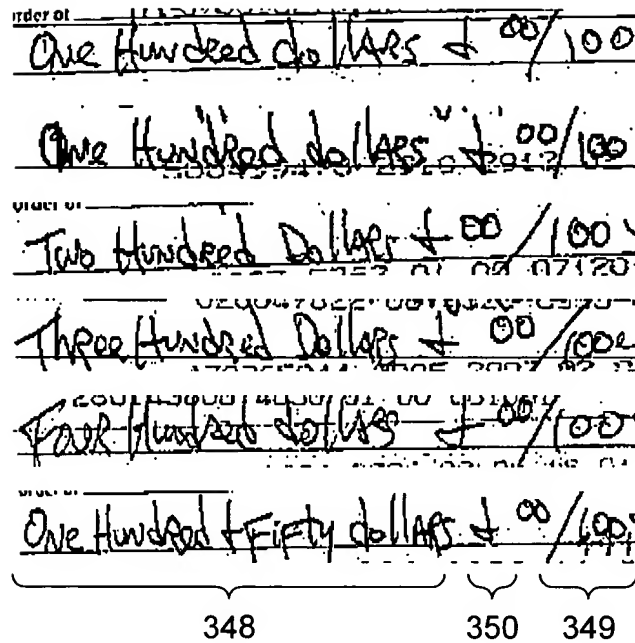 order of
One Hundred dollars & 00/100
One Hundred dollars & 00/100
order of
Two Hundred Dollars & 00/100
Three Hundred Dollars & 00/100
Four Hundred dollars & 00/100
order of
One Hundred & Fifty dollars & 00/100
348 350 349